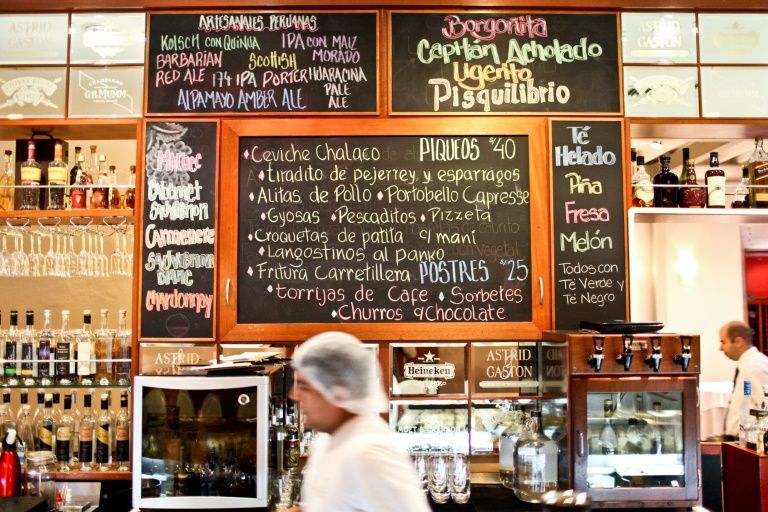 ASTRID
GASTON
G.H. MUMM
ARTESANALES PERUANAS
KOLSCH CON QUINUA
IPA CON MAIZ
MORADO
BARBARIAN
RED ALE
SCOTTISH
174 IPA PORTER
HUARACINA
PALE
ALE
ALPAMAYO AMBER ALE
Borgonita
Capitán Acholado
Ugento
Pisquilibrio
ASTRID
GASTON
Malbec
Cabernet
Sauvignon
Carmenere
Sauvignon
Blanc
Chardonnay
Ceviche Chalaco PIQUEOS S/40
tiradito de pejerrey y esparragos
Alitas de Pollo Portobello Capresse
Gyosas Pescaditos Pizzeta
Croquetas de patita c/ maní
Langostinos al panko
Fritura Carretillera POSTRES S/25
torrijas de Cafe Sorbetes
Churros c/Chocolate
Té
Helado
Piña
Fresa
Melón
Todos con
Té Verde y
Té Negro
ASTRID
GASTON
Heineken
ASTRID
GASTON